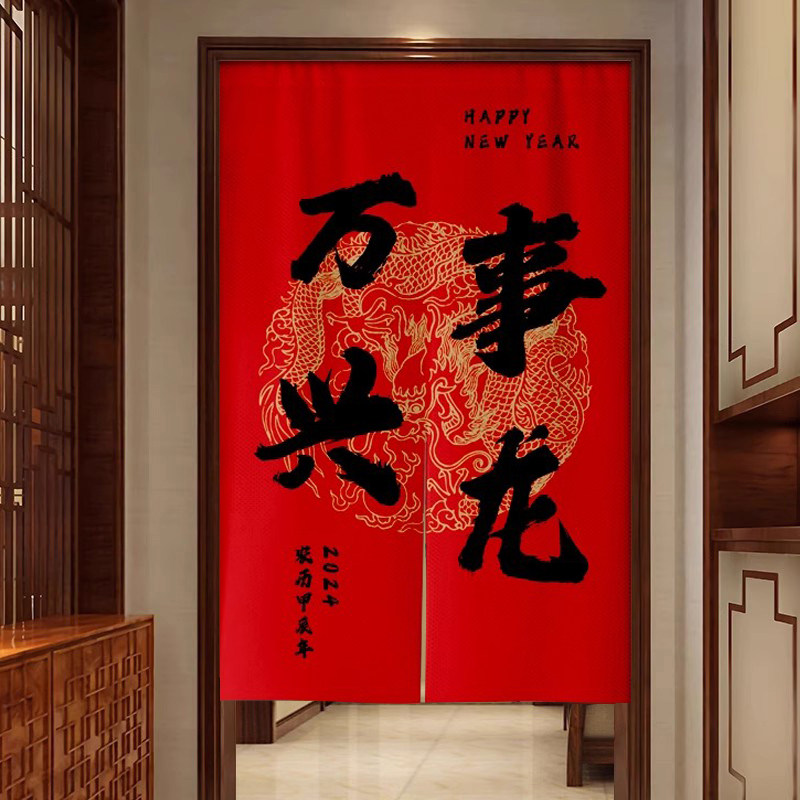 HAPPY
NEW YEAR
万事
兴龙
2024
农历甲辰年